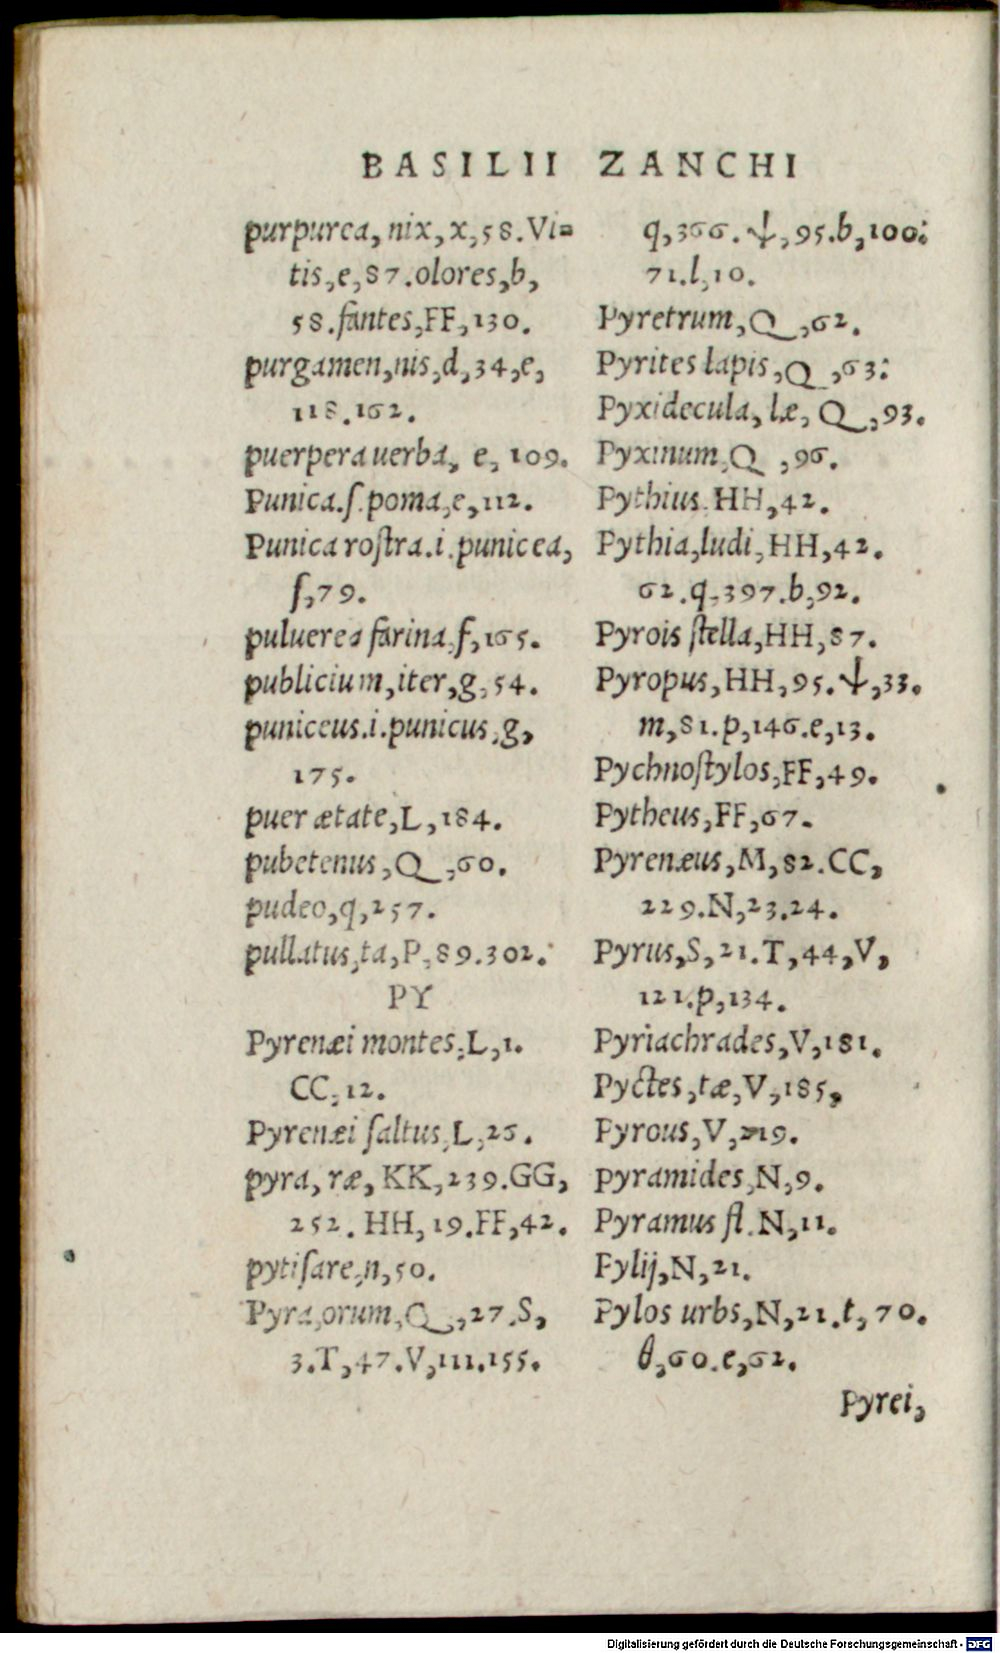 BASILII ZANCHI
purpurea, nix, x, 58. Vi=
tis, e, 87. olores, b,
58. fantes, FF, 130.
purgamen, nis, d, 34, e,
118. 162.
puerpera uerba, e, 109.
Punica. ſ. poma, e, 112.
Punica roſtra. i. punicea,
f, 79.
puluerea farina, f, 165.
publicium, iter, g, 54.
puniceus. i. punicus, g,
175.
puer ætate, L, 184.
pubetenus, Q, 60.
pudeo, q, 257.
pullatus, ta, P, 89. 302.
PY
Pyrenæi montes, L, 1.
CC, 12.
Pyrenæi ſaltus, L, 26.
pyra, ræ, KK, 239. GG,
252. HH, 19. FF, 42.
pytiſare, n, 50.
Pyra, orum, Q, 27. S,
3. T, 47. V, 111. 155.
q, 366. ψ, 95. b, 100:
71. l, 10.
Pyretrum, Q, 62.
Pyrites lapis, Q, 63:
Pyxidecula, læ, Q, 93.
Pyxinum, Q, 96.
Pythius. HH, 42.
Pythia, ludi, HH, 42.
62. q, 397. b, 92.
Pyrois ſtella, HH, 87.
Pyropus, HH, 95. ψ, 33.
m, 81. p, 146. e, 13.
Pychnoſtylos, FF, 49.
Pytheus, FF, 67.
Pyrenæus, M, 82. CC,
229. N, 23. 24.
Pyrus, S, 21. T, 44, V,
121. p, 134.
Pyriachrades, V, 181.
Pyctes, tæ, V, 185,
Pyrous, V, 219.
pyramides, N, 9.
Pyramus fl. N, 11.
Pylij, N, 21.
Pylos urbs, N, 21. t, 70.
θ, 60. e, 62.
Pyrei,
Digitalisierung gefördert durch die Deutsche Forschungsgemeinschaft - DFG